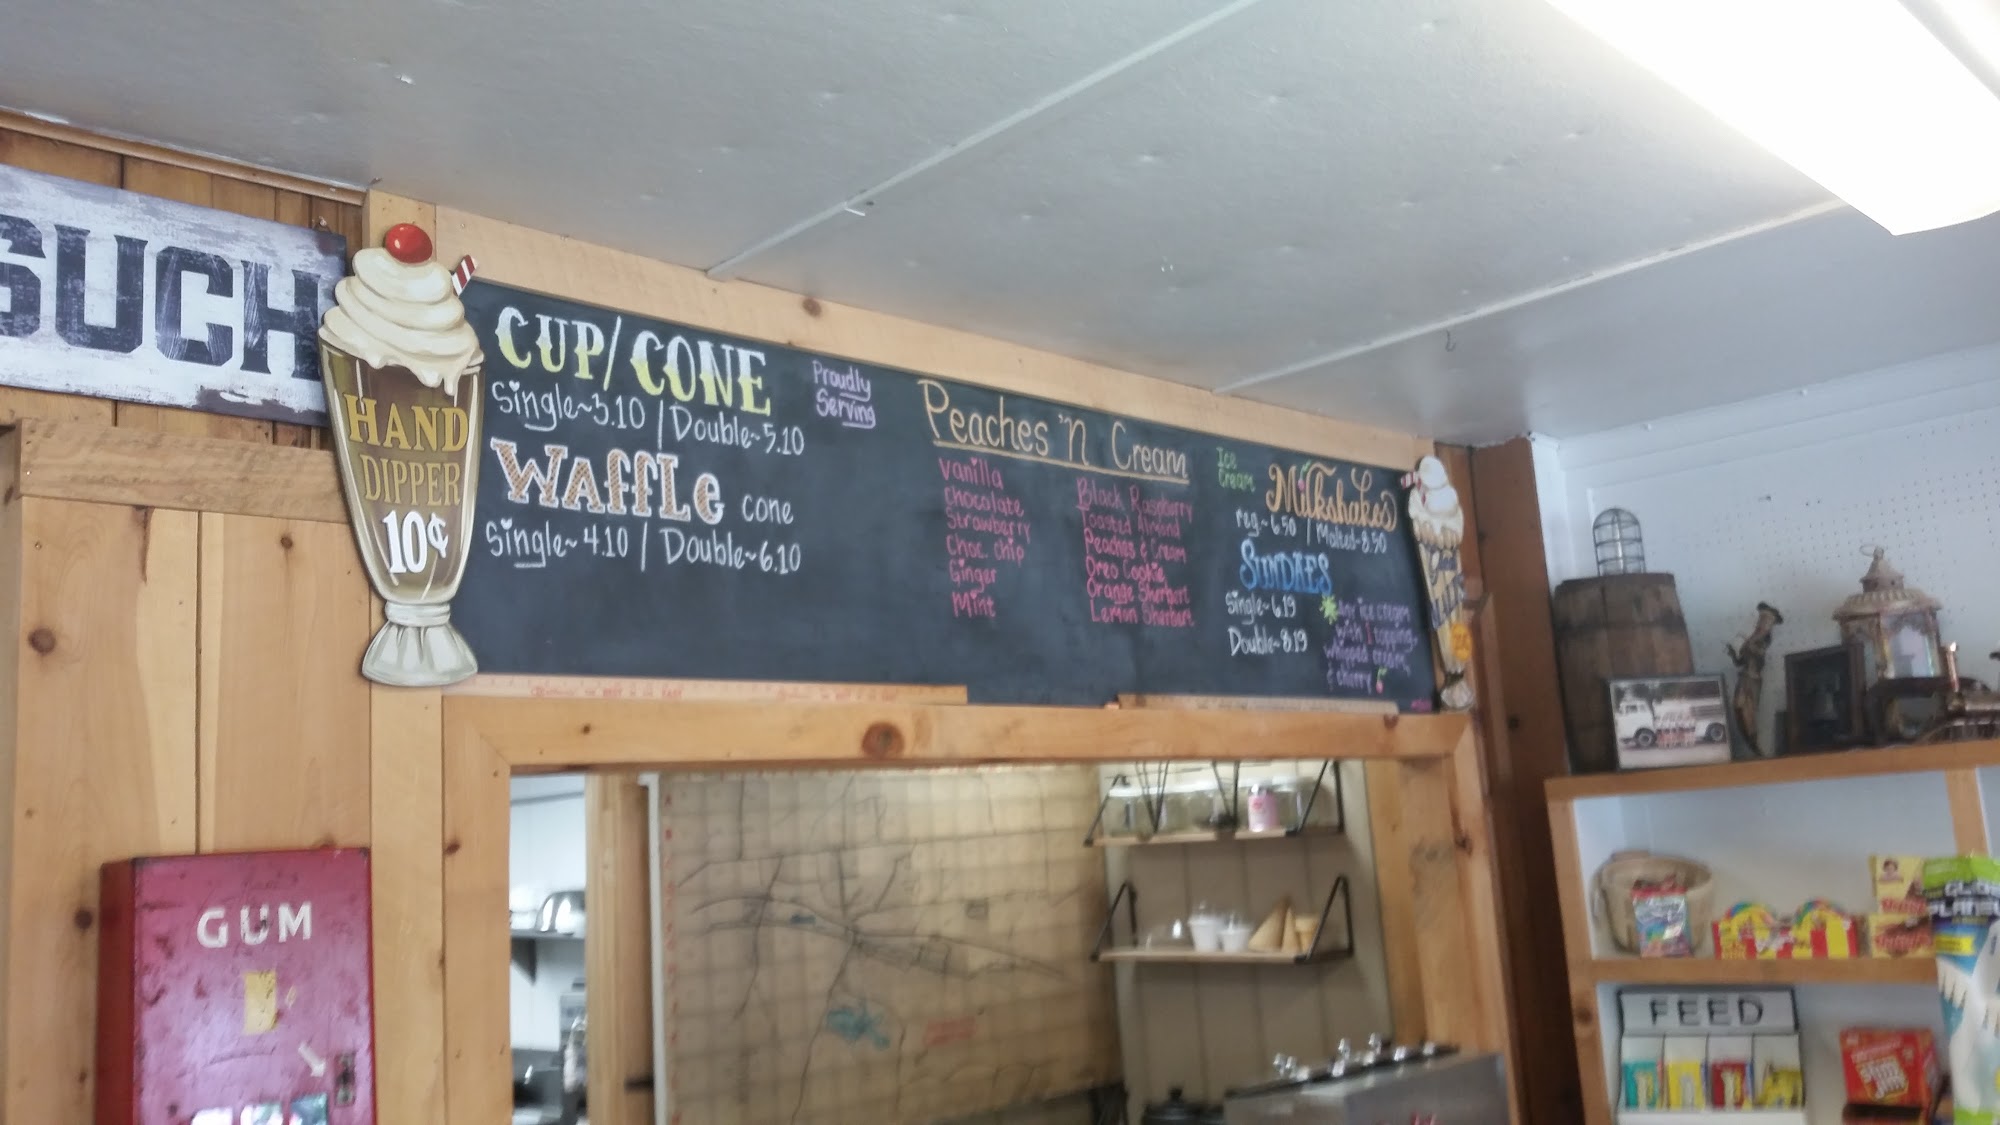 SUCH
HAND
DIPPER
10¢
CUP/CONE
Single~3.10 / Double~5.10
WAffLe cone
Single~4.10 / Double~6.10
Proudly
Serving
Peaches 'n Cream
Vanilla
Chocolate
Strawberry
Choc. chip
Ginger
Mint
Black Raspberry
Toasted Almond
Peaches & Cream
Oreo Cookie
Orange Sherbert
Lemon Sherbert
Ice
Cream
Milkshakes
reg~6.50 / Malted~8.50
SUNDAES
Single~6.19
Double~8.19
Any ice cream
with 1 topping,
whipped cream,
& cherry
GUM
FEED